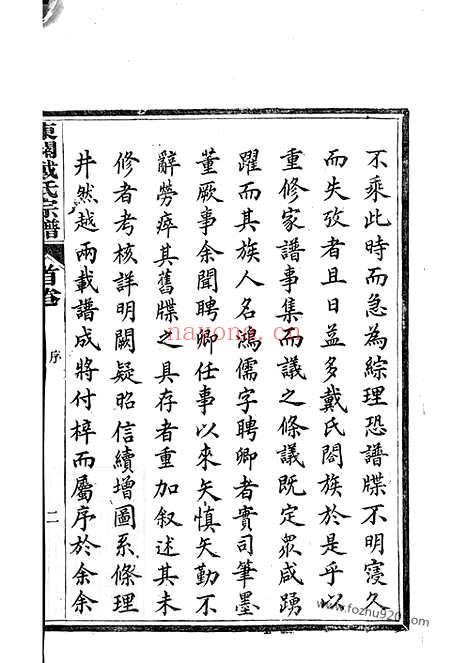 不乘此時而急為綜理恐譜牒不明寖久
而失攷者且日益多戴氏閤族於是乎以
重修家譜事集而議之條議既定眾咸踴
躍而其族人名鴻儒字聘卿者實司筆墨
董厥事余聞聘卿任事以來矢慎矢勤不
辭勞瘁其舊牒之具存者重加叙述其未
修者考核詳明闕疑昭信續增圖系條理
井然越兩載譜成將付梓而屬序於余余
東關戴氏宗譜
首卷
序
二
nayong.cn
www.fozhu920.com